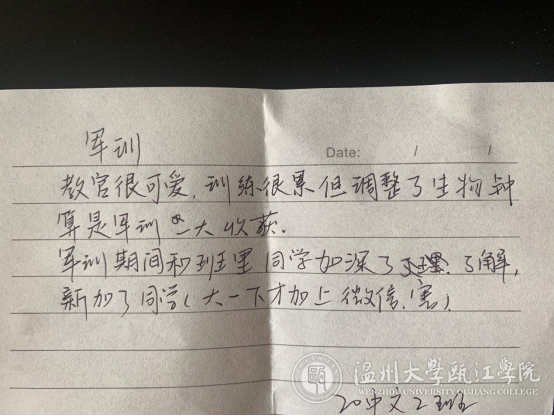 军训
Date: / /
教官很可爱,训练很累但调整了生物钟
算是军训一大收获。
军训期间和班里同学加深了了解,
新加了同学(大一下才加上微信,害)
20中文2班
温州大学瓯江学院
WENZHOU UNIVERSITY OUJIANG COLLEGE